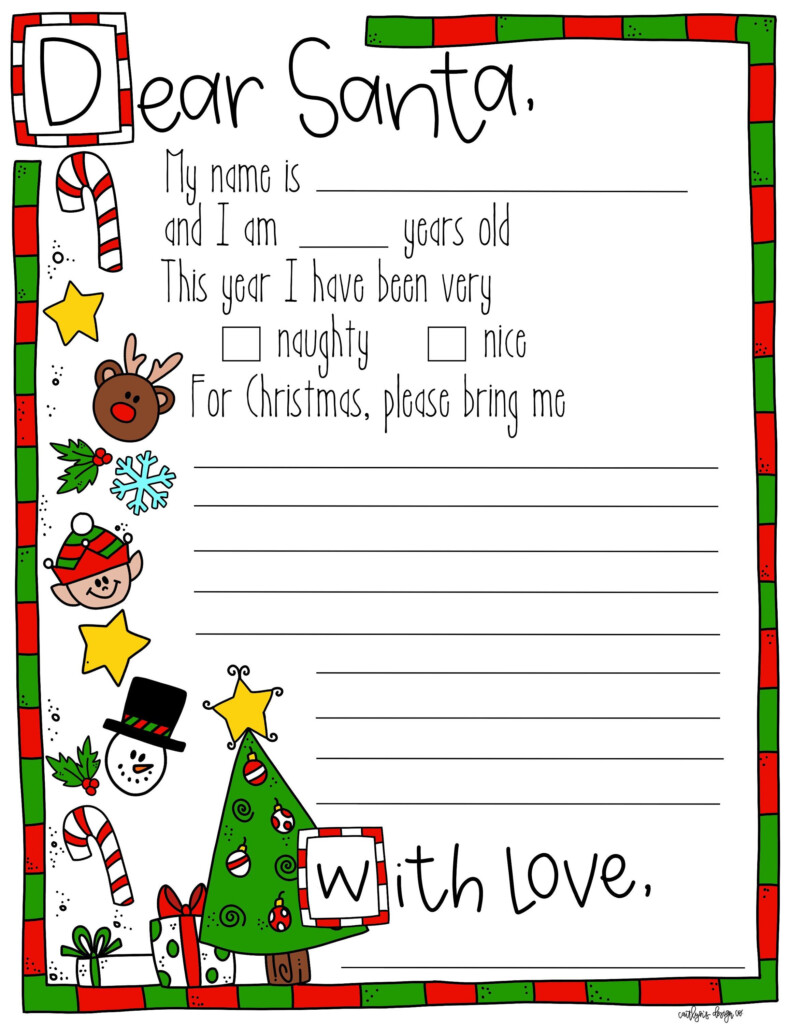 Dear Santa,
My name is
and I am years old
This year I have been very
naughty nice
For Christmas, please bring me
with love,
caitlyn's design co